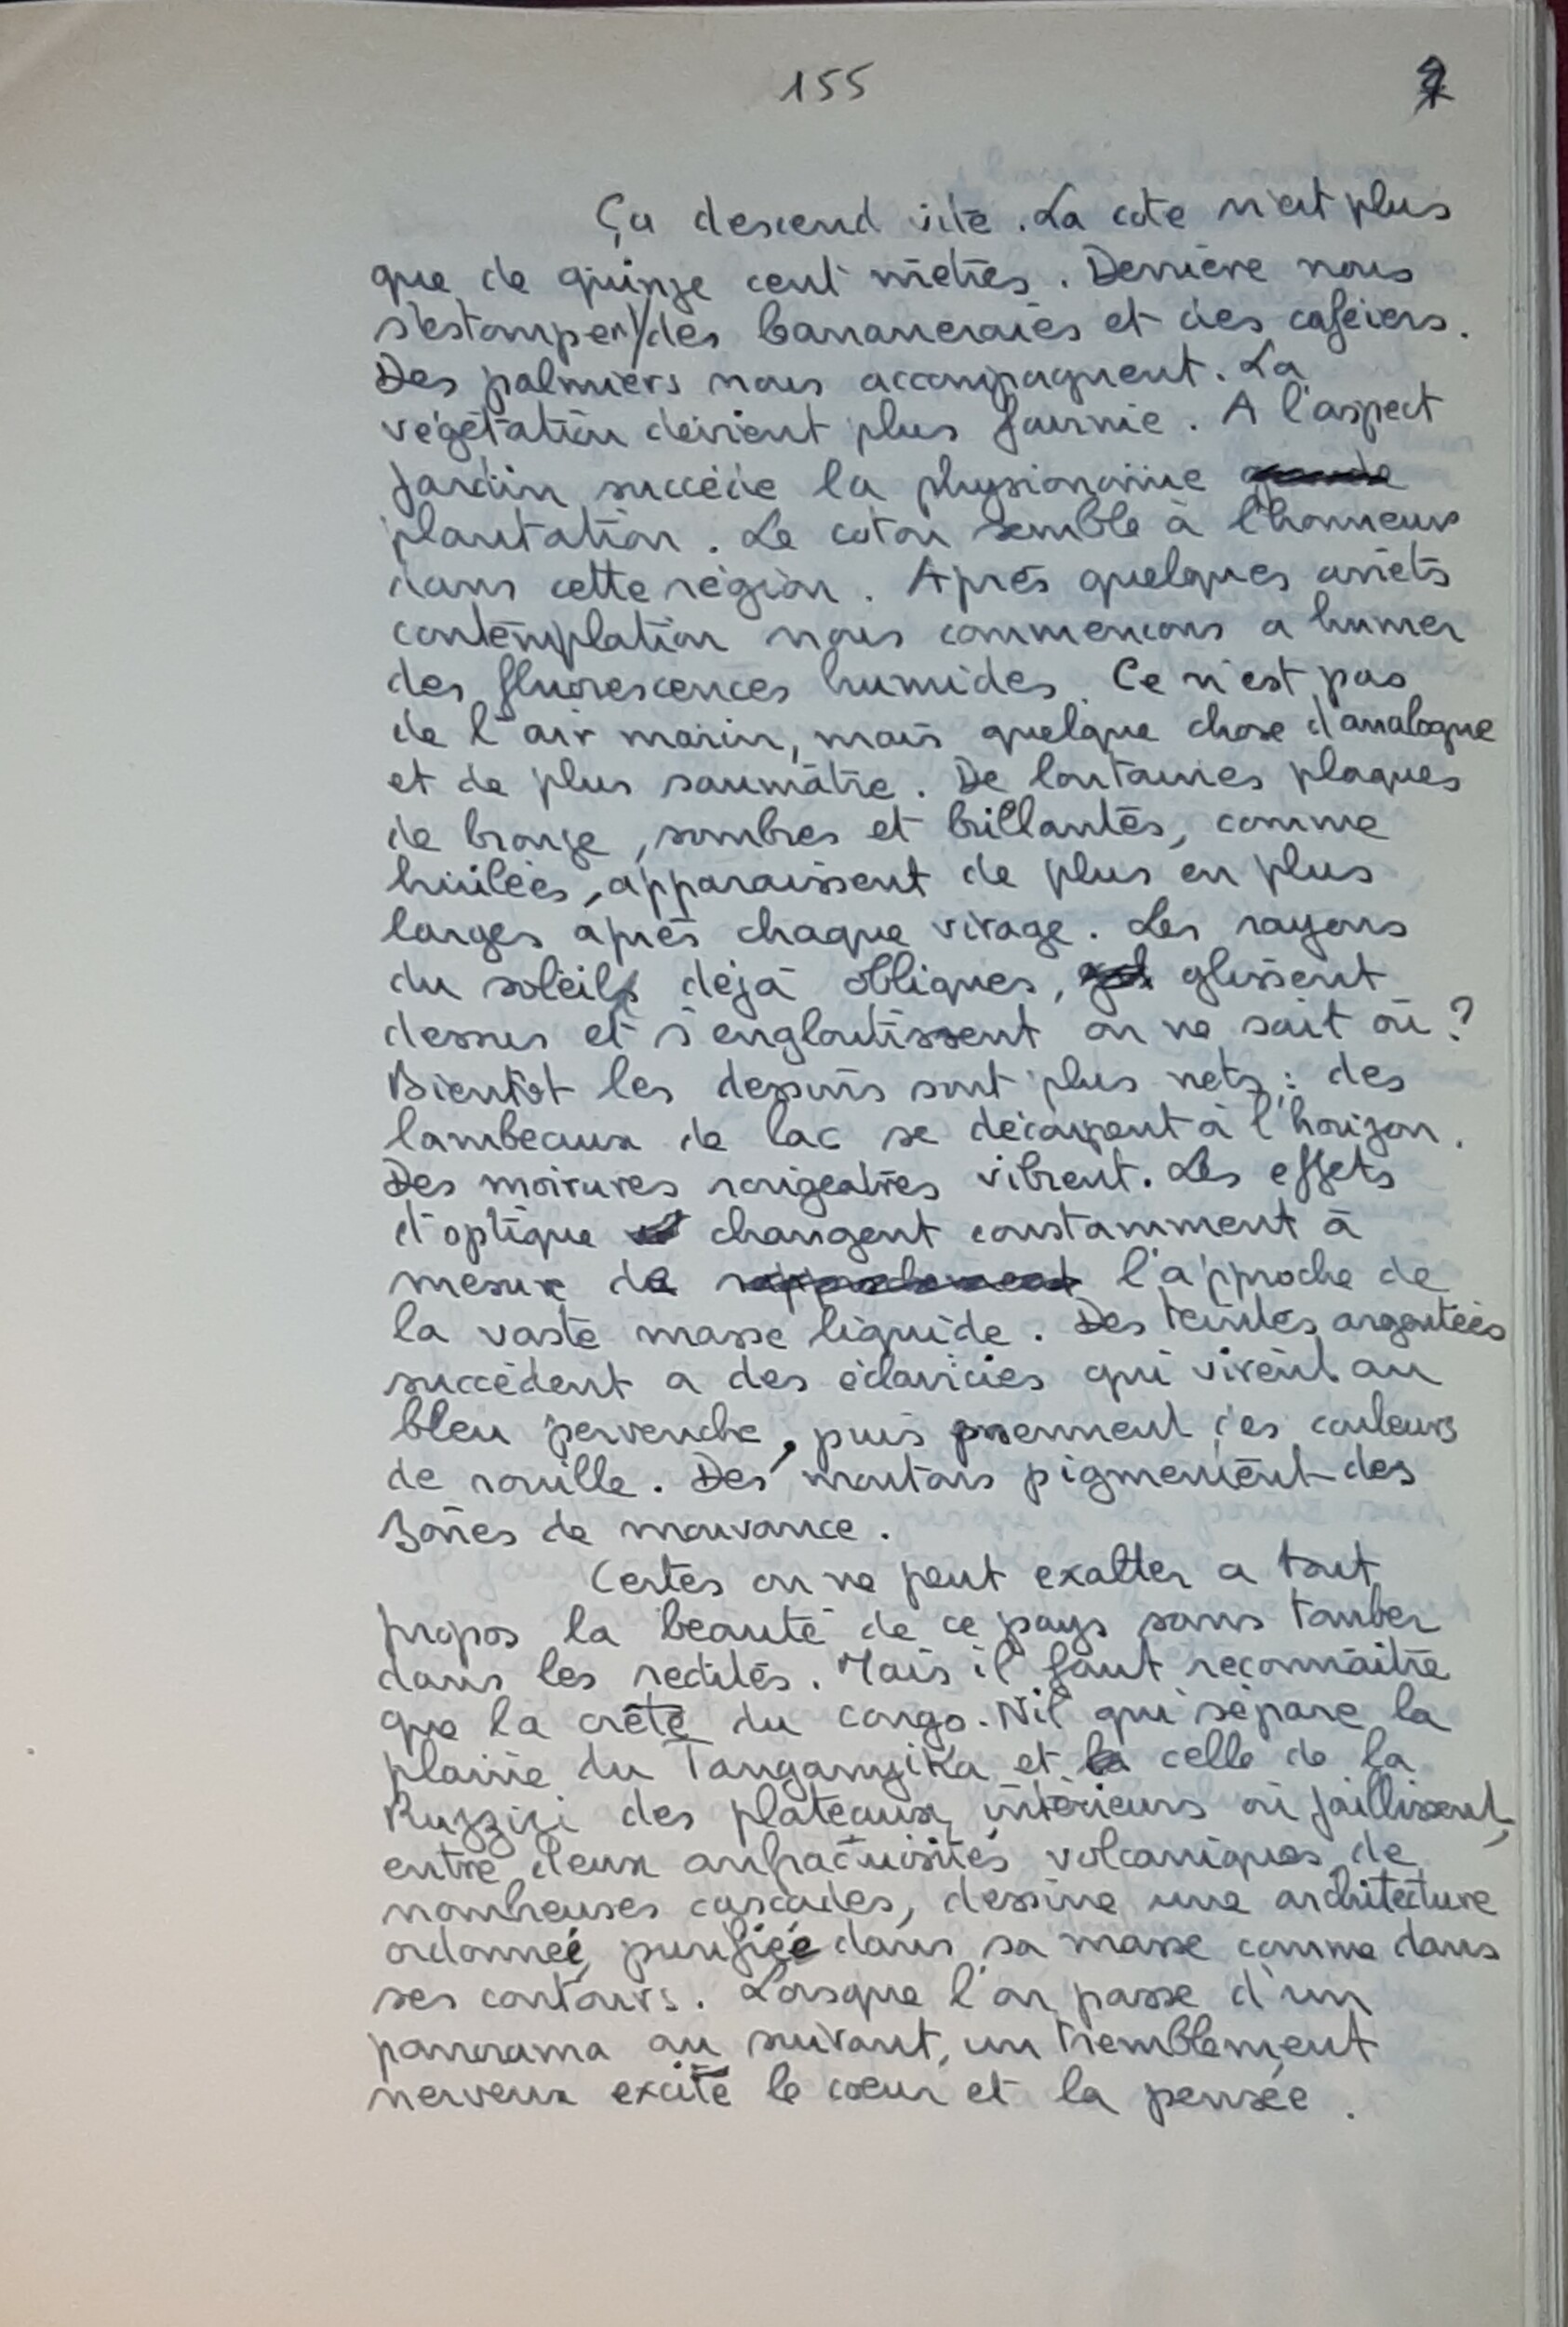 155
Ça descend vite. La cote n'est plus
que de quinze cent mètres. Derrière nous
s'estompent des bananeraies et des caféiers.
Des palmiers nous accompagnent. La
végétation devient plus fournie. A l'aspect
jardin succède la physionomie
plantation. Le coton semble à l'honneur
dans cette région. Après quelques arrêts
contemplation nous commencons a humer
des fluorescences humides. Ce n'est pas
de l'air marin, mais quelque chose d'analogue
et de plus saumâtre. De lontaines plaques
de bronze, sombres et brillantes, comme
huilées, apparaissent de plus en plus
larges après chaque virage. Les rayons
du soleil, déjà obliques, glissent
dessus et s'engloutissent on ne sait où ?
Bientôt les dessins sont plus nets : des
lambeaux de lac se découpent à l'horizon.
Des moirures rougeatres vibrent. Les effets
d'optique changent constamment à
mesure de l'approche de
la vaste masse liquide. Des teintes argentées
succèdent a des éclaircies qui virent au
bleu pervenche, puis prennent des couleurs
de rouille. Des moutons pigmentent des
zones de mouvance.
Certes on ne peut exalter a tout
propos la beauté de ce pays sans tomber
dans les redites. Mais il faut reconnaître
que la crête du congo-Nil qui sépare la
plaine du Tanganyika et celle de la
Ruzzizi des plateaux intérieurs où jaillissent,
entre deux anfractuosités volcaniques de
nombreuses cascades, dessine une architecture
ordonnée, purifiée dans sa masse comme dans
ses contours. Lorsque l'on passe d'un
panorama au suivant, un tremblement
nerveux excite le coeur et la pensée.